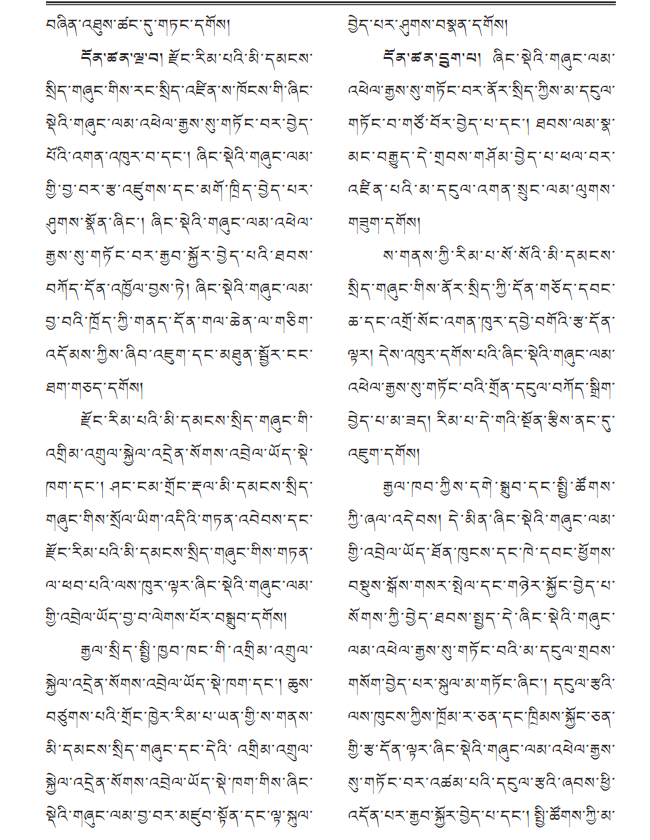 བཞིན་འཐུས་ཚང་དུ་གཏང་དགོས།
དོན་ཚན་ལྔ་བ། རྫོང་རིམ་པའི་མི་དམངས་
སྲིད་གཞུང་གིས་རང་སྲིད་འཛིན་ས་ཁོངས་གི་ཞིང་
སྡེའི་གཞུང་ལམ་འཕེལ་རྒྱས་སུ་གཏོང་བར་བྱེད་
པོའི་འགན་འཁུར་བ་དང་། ཞིང་སྡེའི་གཞུང་ལམ་
གྱི་བྱ་བར་རྩ་འཛུགས་དང་མགོ་ཁྲིད་བྱེད་པར་
ཤུགས་སྣོན་ཞིང་། ཞིང་སྡེའི་གཞུང་ལམ་འཕེལ་
རྒྱས་སུ་གཏོང་བར་རྒྱབ་སྐྱོར་བྱེད་པའི་ཐབས་
བཀོད་དོན་འཁྱོལ་བྱས་ཏེ། ཞིང་སྡེའི་གཞུང་ལམ་
བྱ་བའི་ཁྲོད་ཀྱི་གནད་དོན་གལ་ཆེན་ལ་གཅིག་
འདོམས་ཀྱིས་ཞིབ་འཇུག་དང་མཐུན་སྦྱོར་ངང་
ཐག་གཅད་དགོས།
རྫོང་རིམ་པའི་མི་དམངས་སྲིད་གཞུང་གི་
འགྲིམ་འགྲུལ་སྐྱེལ་འདྲེན་སོགས་འབྲེལ་ཡོད་སྡེ་
ཁག་དང་། ཤང་ངམ་གྲོང་རྡལ་མི་དམངས་སྲིད་
གཞུང་གིས་སྲོལ་ཡིག་འདིའི་གཏན་འབེབས་དང་
རྫོང་རིམ་པའི་མི་དམངས་སྲིད་གཞུང་གིས་གཏན་
ལ་ཕབ་པའི་ལས་ཁུར་ལྟར་ཞིང་སྡེའི་གཞུང་ལམ་
གྱི་འབྲེལ་ཡོད་བྱ་བ་ལེགས་པོར་བསྒྲུབ་དགོས།
རྒྱལ་སྲིད་སྤྱི་ཁྱབ་ཁང་གི་འགྲིམ་འགྲུལ་
སྐྱེལ་འདྲེན་སོགས་འབྲེལ་ཡོད་སྡེ་ཁག་དང་། ཆུས་
བཙུགས་པའི་གྲོང་ཁྱེར་རིམ་པ་ཡན་གྱི་ས་གནས་
མི་དམངས་སྲིད་གཞུང་དང་དེའི་ འགྲིམ་འགྲུལ་
སྐྱེལ་འདྲེན་སོགས་འབྲེལ་ཡོད་སྡེ་ཁག་གིས་ཞིང་
སྡེའི་གཞུང་ལམ་བྱ་བར་མཛུབ་སྟོན་དང་ལྟ་སྐུལ་
བྱེད་པར་ཤུགས་བསྣན་དགོས།
དོན་ཚན་དྲུག་པ། ཞིང་སྡེའི་གཞུང་ལམ་
འཕེལ་རྒྱས་སུ་གཏོང་བར་ནོར་སྲིད་ཀྱིས་མ་དངུལ་
གཏོང་བ་གཙོ་བོར་བྱེད་པ་དང་། ཐབས་ལམ་སྣ་
མང་བརྒྱུད་དེ་གྲབས་གཤོམ་བྱེད་པ་ཕལ་བར་
འཛིན་པའི་མ་དངུལ་འགན་སྲུང་ལམ་ལུགས་
གཟུག་དགོས།
ས་གནས་ཀྱི་རིམ་པ་སོ་སོའི་མི་དམངས་
སྲིད་གཞུང་གིས་ནོར་སྲིད་ཀྱི་དོན་གཅོད་དབང་
ཆ་དང་འགྲོ་སོང་འགན་ཁུར་དབྱེ་བགོའི་རྩ་དོན་
ལྟར། དེས་འཁུར་དགོས་པའི་ཞིང་སྡེའི་གཞུང་ལམ་
འཕེལ་རྒྱས་སུ་གཏོང་བའི་གྲོན་དངུལ་བཀོད་སྒྲིག་
བྱེད་པ་མ་ཟད། རིམ་པ་དེ་གའི་སྔོན་རྩིས་ནང་དུ་
འཇུག་དགོས།
རྒྱལ་ཁབ་ཀྱིས་དགེ་སྒྲུབ་དང་སྤྱི་ཚོགས་
ཀྱི་ཞལ་འདེབས། དེ་མིན་ཞིང་སྡེའི་གཞུང་ལམ་
གྱི་འབྲེལ་ཡོད་ཐོན་ཁུངས་དང་ཁེ་དབང་ཕྱོགས་
བསྡུས་སྒོས་གསར་སྤེལ་དང་གཉེར་སྐྱོང་བྱེད་པ་
སོགས་ཀྱི་བྱེད་ཐབས་སྤྱད་དེ་ཞིང་སྡེའི་གཞུང་
ལམ་འཕེལ་རྒྱས་སུ་གཏོང་བའི་མ་དངུལ་གྲབས་
གསོག་བྱེད་པར་སྐུལ་མ་གཏོང་ཞིང་། དངུལ་རྩའི་
ལས་ཁུངས་ཀྱིས་ཁྲོམ་ར་ཅན་དང་ཁྲིམས་སྐྱོང་ཅན་
གྱི་རྩ་དོན་ལྟར་ཞིང་སྡེའི་གཞུང་ལམ་འཕེལ་རྒྱས་
སུ་གཏོང་བར་འཚམ་པའི་དངུལ་རྩའི་ཞབས་ཕྱི་
འདོན་པར་རྒྱབ་སྐྱོར་བྱེད་པ་དང་། སྤྱི་ཚོགས་ཀྱི་མ་